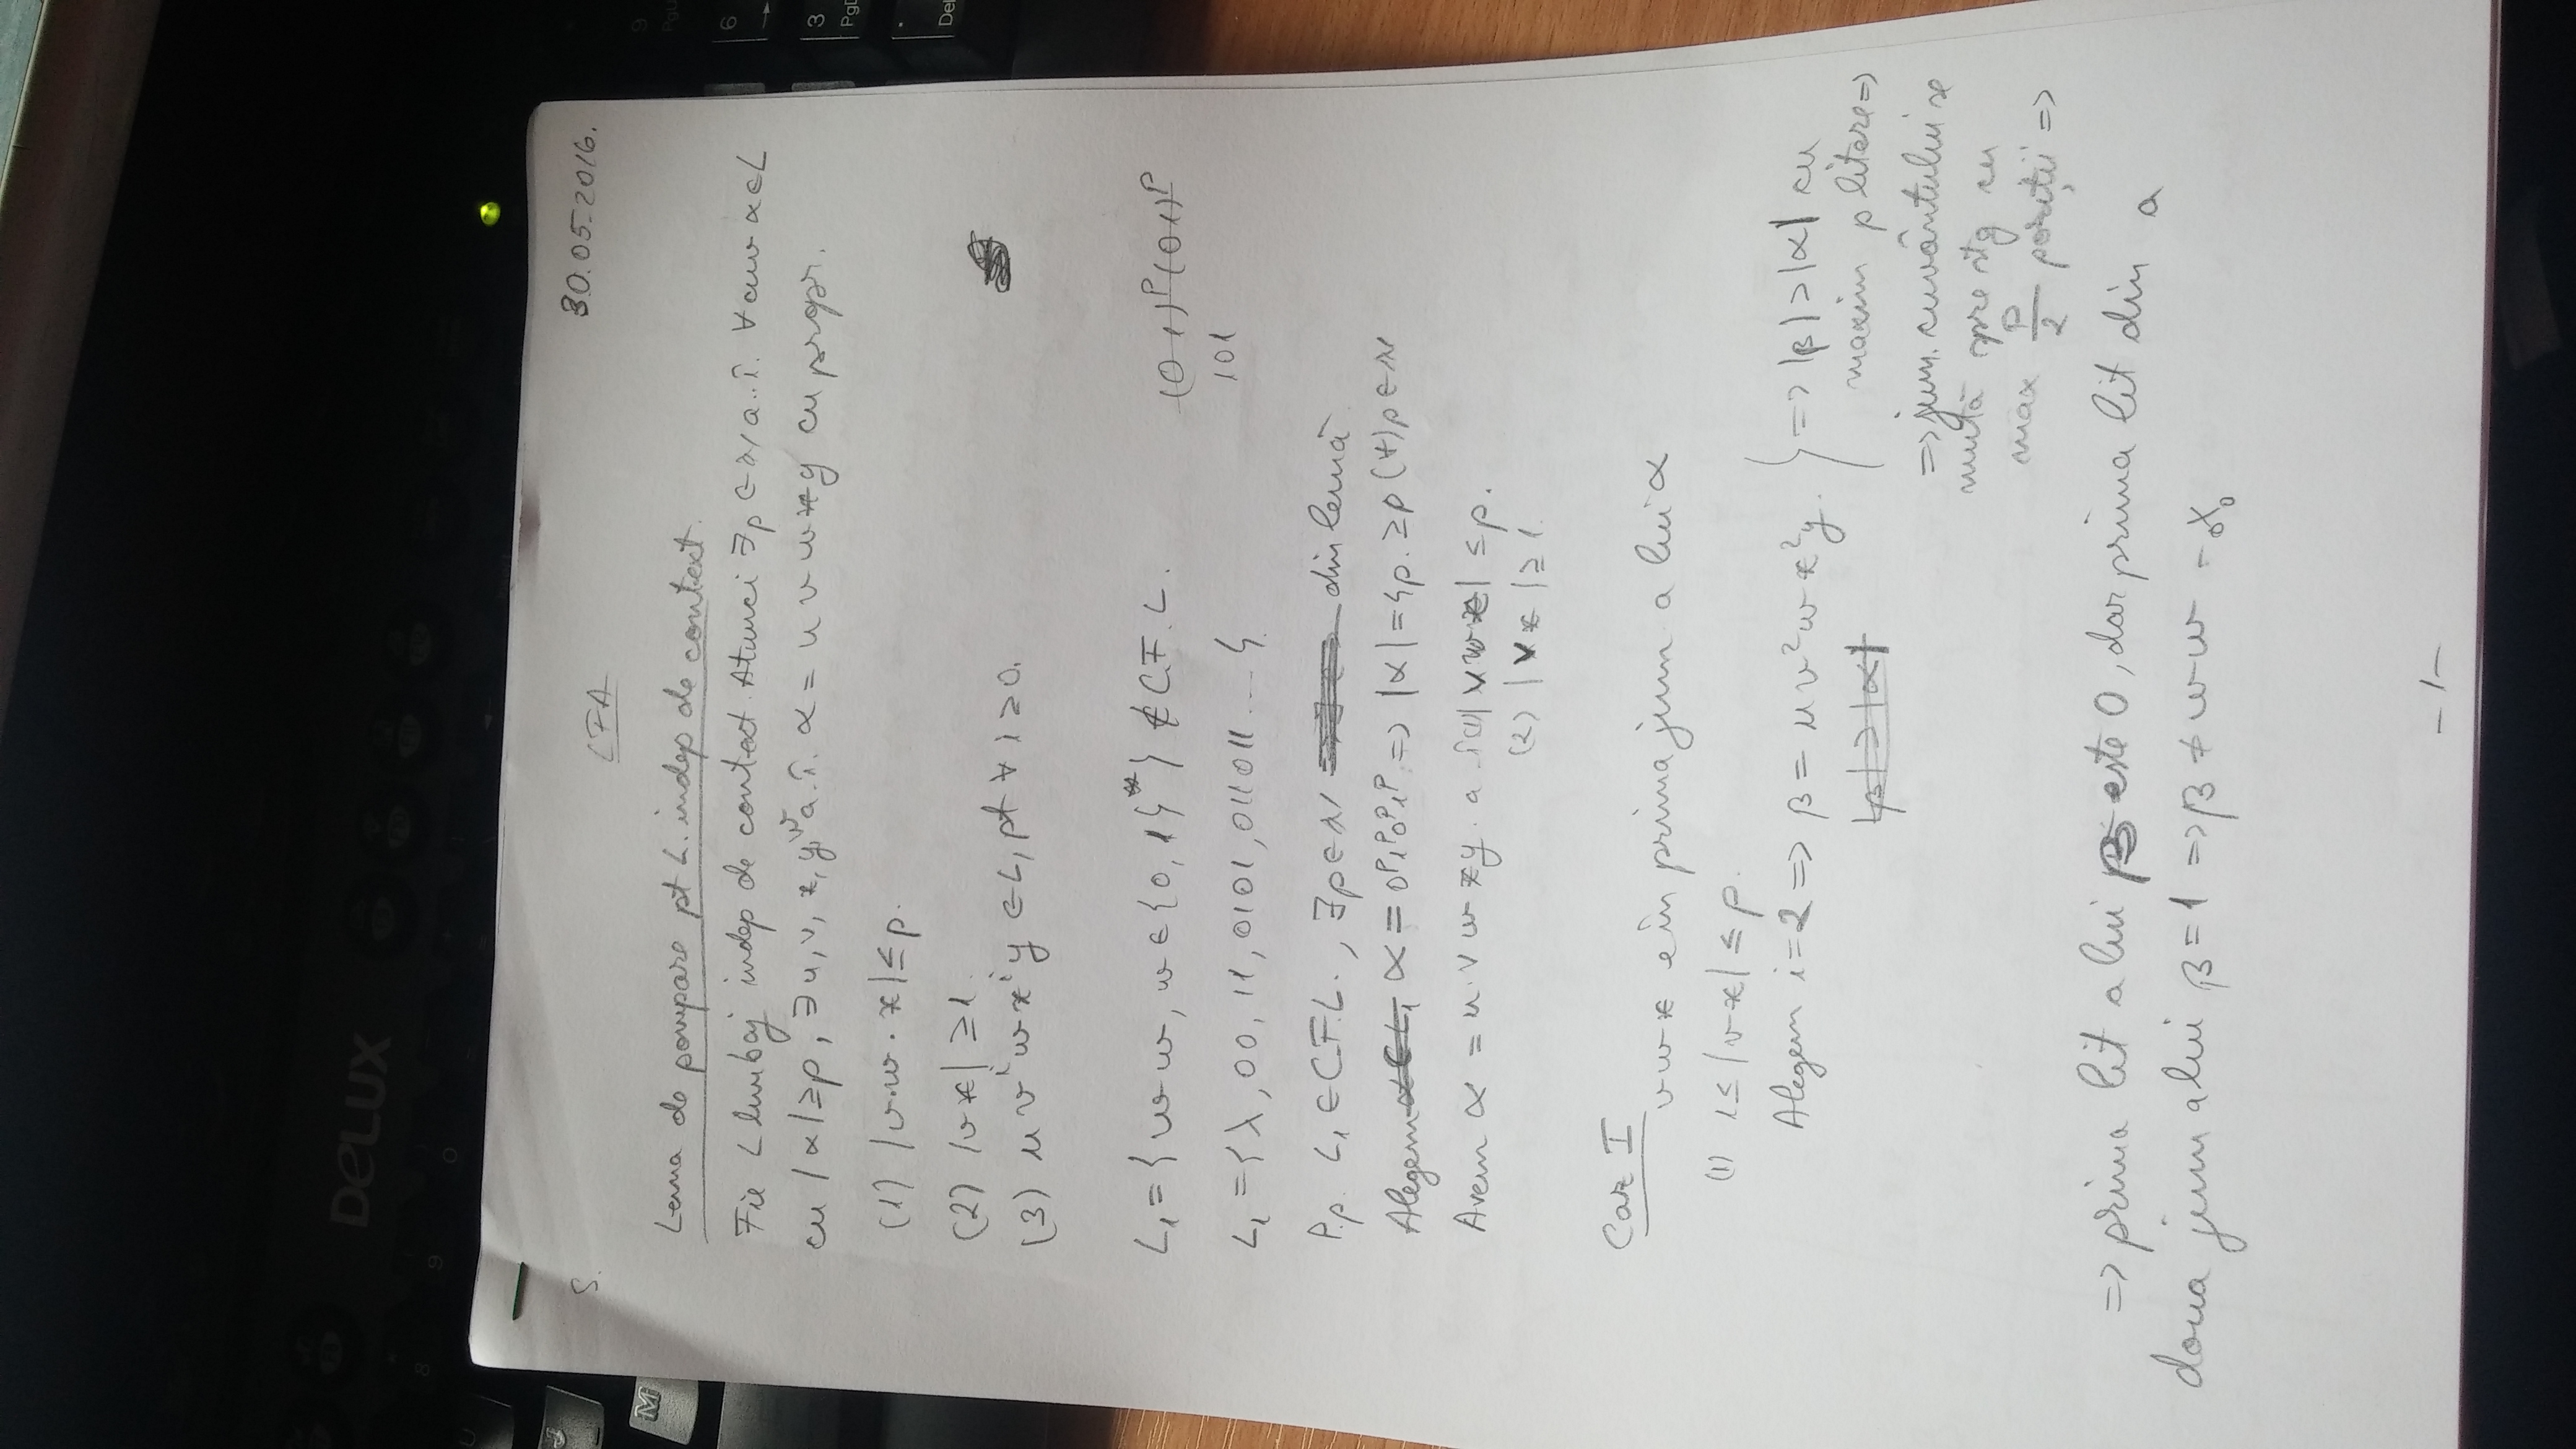 DELUX
8
9
0
U
J
M
9
PgU
6
→
3
PgD
.
Del
S.
30.05.2016.
LFA
Lema de pompare pt L. indep de context.
Fie L limbaj indep de context. Atunci ∃p∈N a..î. ∀ cuv α∈L
cu |α|≥p, ∃u, v, x, y, w a.î. α = u v w x y cu propr.
(1) |v·w·x|≤p.
(2) |vx| ≥1.
(3) u vⁱ w xⁱ y ∈L, pt ∀ i≥0.
L₁={ww, w∈{0,1}*} ∉C.F.L.
(01)ᵖ(01)ᵖ
101
L₁={λ,00,11,0101,011011....}.
P.p. L₁∈C.F.L., ∃p∈N din lemă
Alegem α∈L₁ α=0ᵖ1ᵖ0ᵖ1ᵖ => |α|=4p. ≥p (∀)p∈N
Avem α = u·v w x y. a î (1) |vwx| ≤p.
(2) |vx|≥1.
Caz I
vwx e în prima jum a lui α
(1) 1≤|vx|≤p.
Alegem i=2 => β = u v² w x² y.
|β|>|α|
} => |β|>|α| cu
maxim p litere=>
=> jum. cuvântului se
mută spre stg cu
max p/2 poziții =>
=> prima lit a lui β este 0, dar prima lit din a
doua jum a lui β=1 =>β≠ww -
-1-